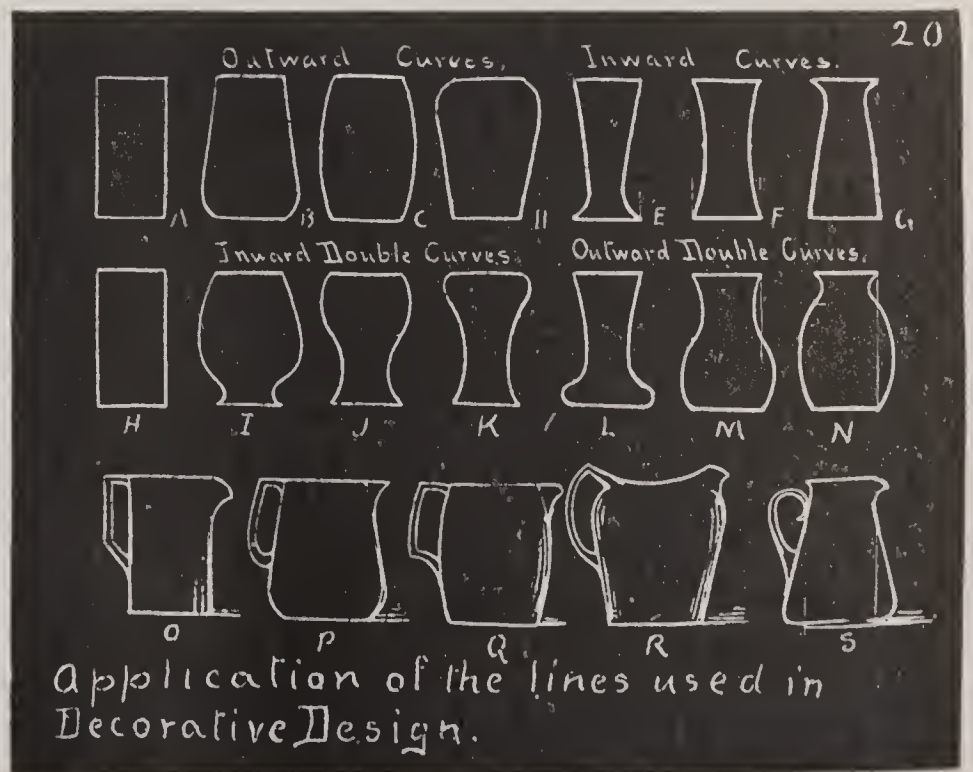 20
Outward Curves. Inward Curves.
A B C D E F G
Inward Double Curves. Outward Double Curves.
H I J K L M N
O P Q R S
Application of the lines used in
Decorative Design.